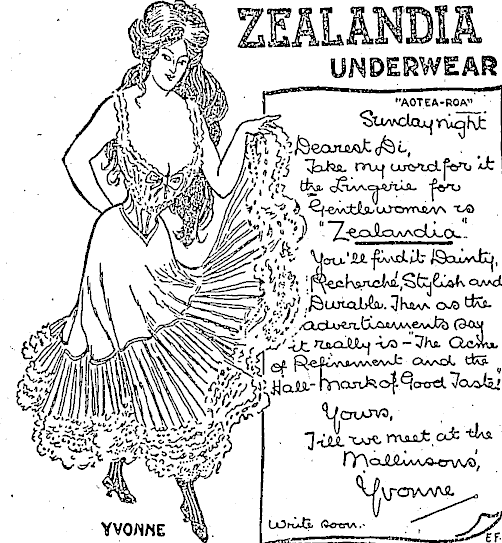 ZEALANDIA
UNDERWEAR
"AOTEA-ROA"
Sunday night
Dearest Di,
Take my word for it
the Lingerie for
Gentlewomen is
"Zealandia"
You'll find it Dainty,
Recherché, Stylish and
Durable. Then as the
advertisements say
it really is - "The Acme
of Refinement and the
Hall-mark of Good Taste!"
Yours,
Till we meet at the
Mallinsons',
Yvonne
Write soon.
E.F.
YVONNE